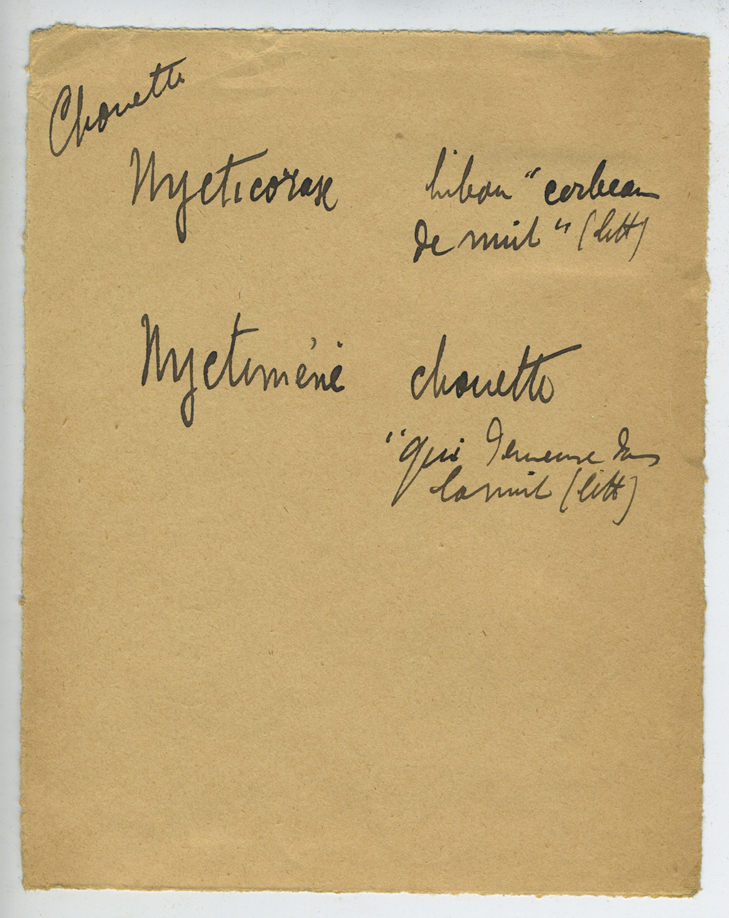 Chouette
Nycticorax hibou "corbeau
de nuit" (litt)
Nyctiméné chouette
"qui demeure dans
la nuit (litt)